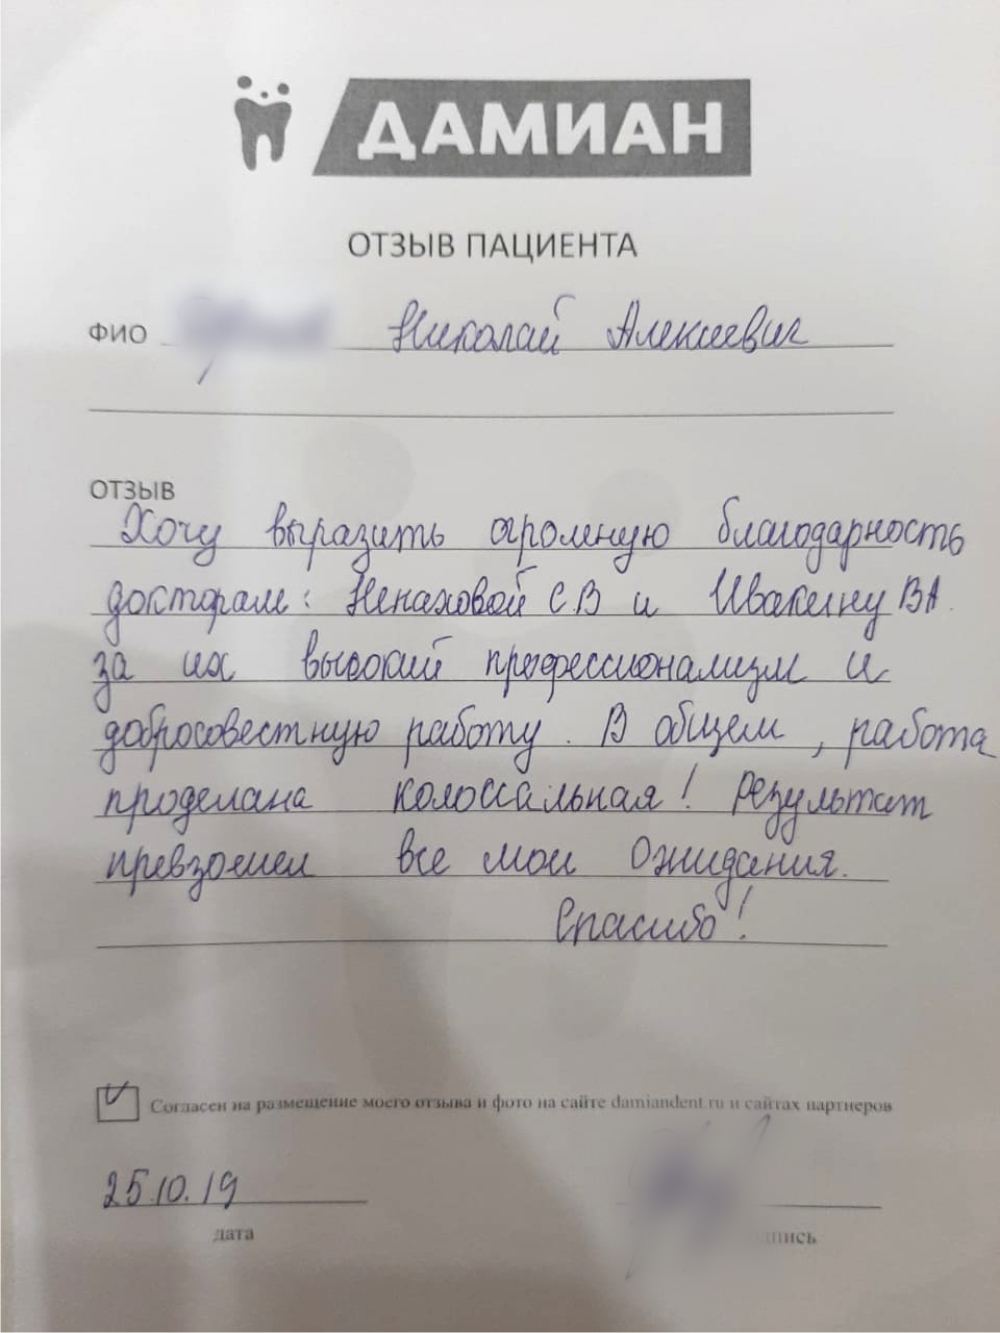 ДАМИАН
ОТЗЫВ ПАЦИЕНТА
ФИО Николай Алексеевич
ОТЗЫВ
Хочу выразить огромную благодарность
докторам: Ненаховой С.В и Ивакину ВА.
за их высокий профессионализм и
добросовестную работу. В общем, работа
проделана колоссальная! Результат
превзошел все мои Ожидания.
Спасибо!
Согласен на размещение моего отзыва и фото на сайте damiandent.ru и сайтах партнеров
25.10.19
дата